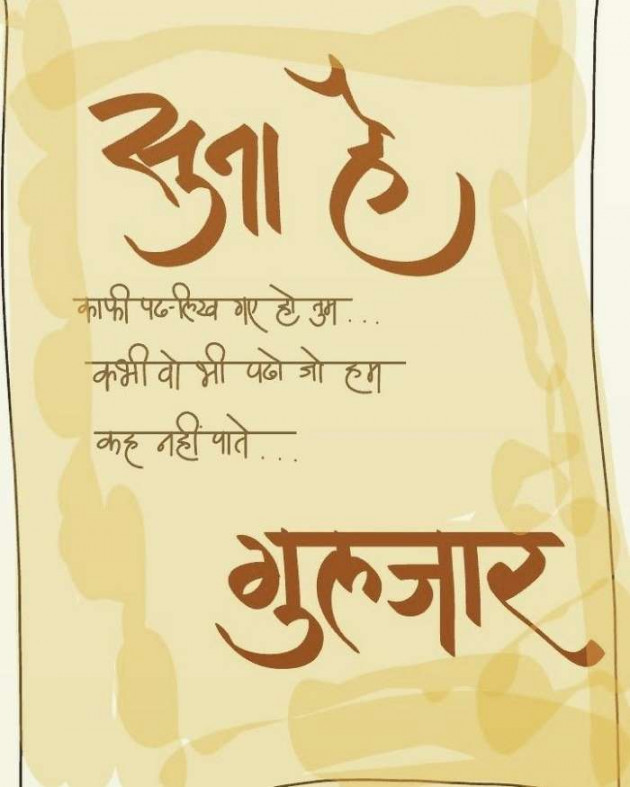 सुना है
काफी पढ-लिख गए हो तुम...
कभी वो भी पढो जो हम
कह नहीं पाते...
गुलजार